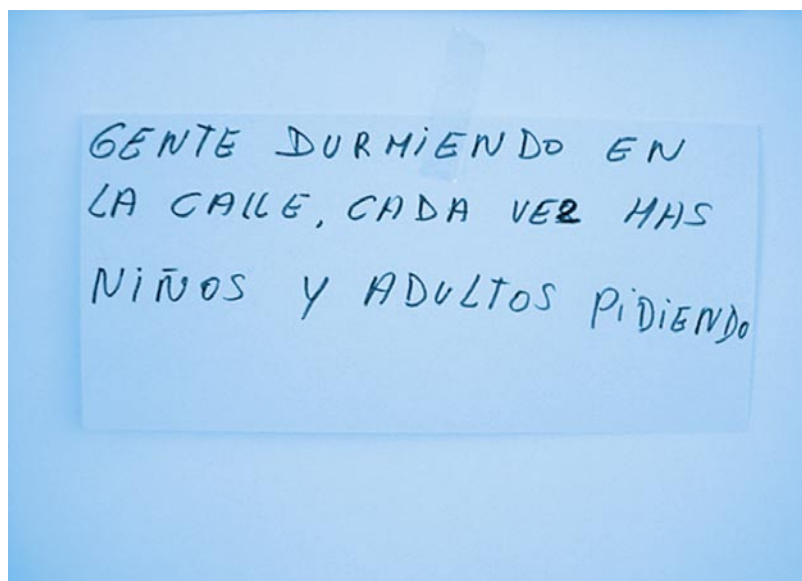 GENTE DURMIENDO EN
LA CALLE, CADA VEZ MAS
NIÑOS Y ADULTOS PIDIENDO